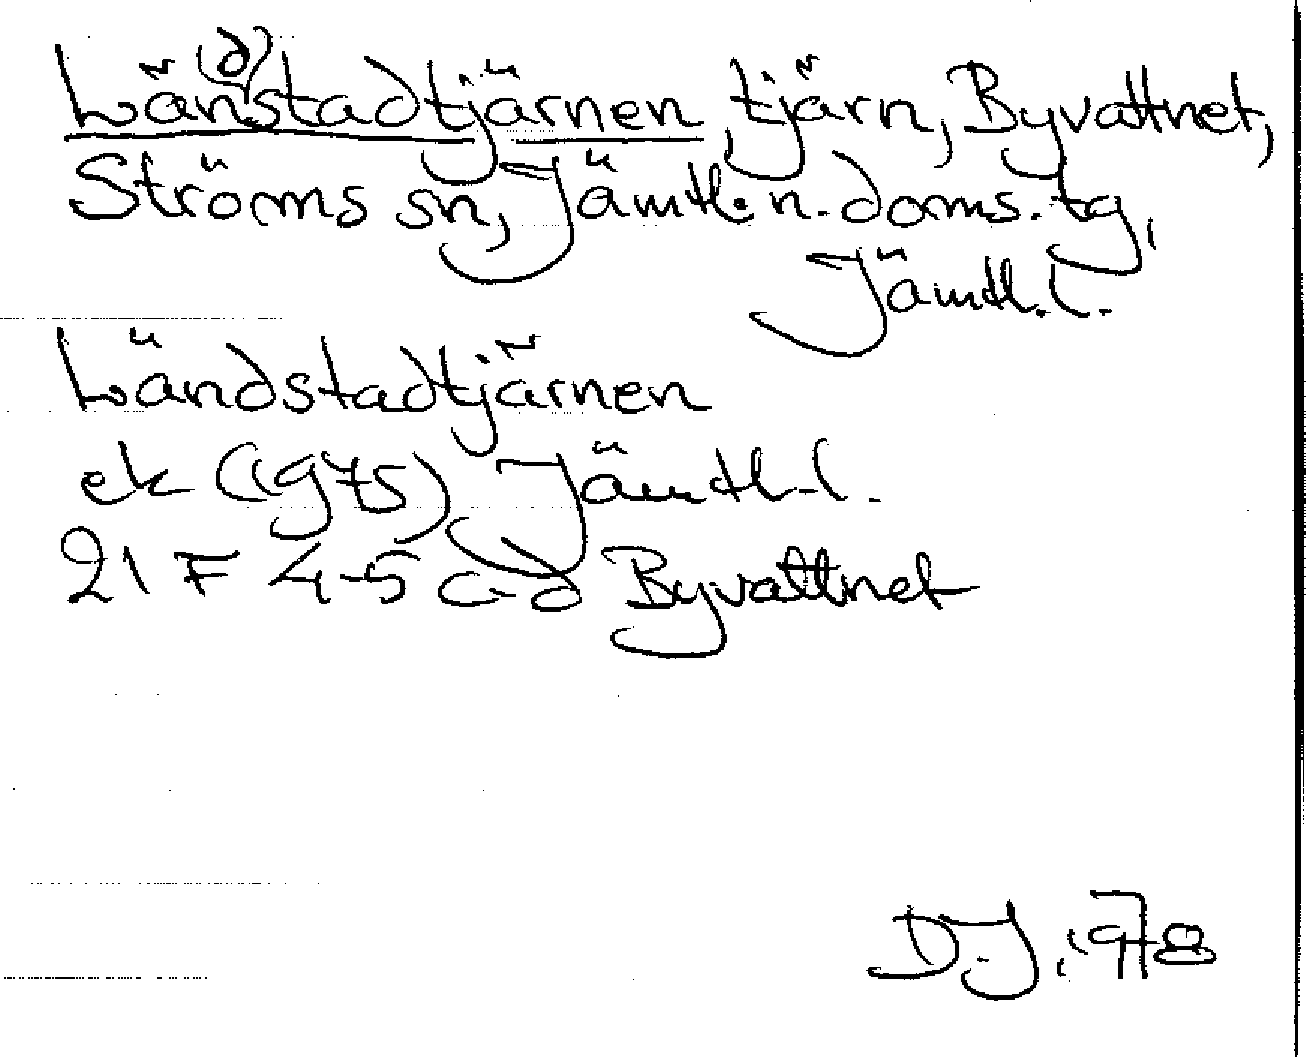 Län(d)stadtjärnen, tjärn, Byvattnet,
Ströms sn, Jämtl:s n. doms. tg,
Jämtl. l.
Ländstadtjärnen
ek (1975) Jämtl. l.
21 F 4-5 c-d Byvattnet
D.J. 1978